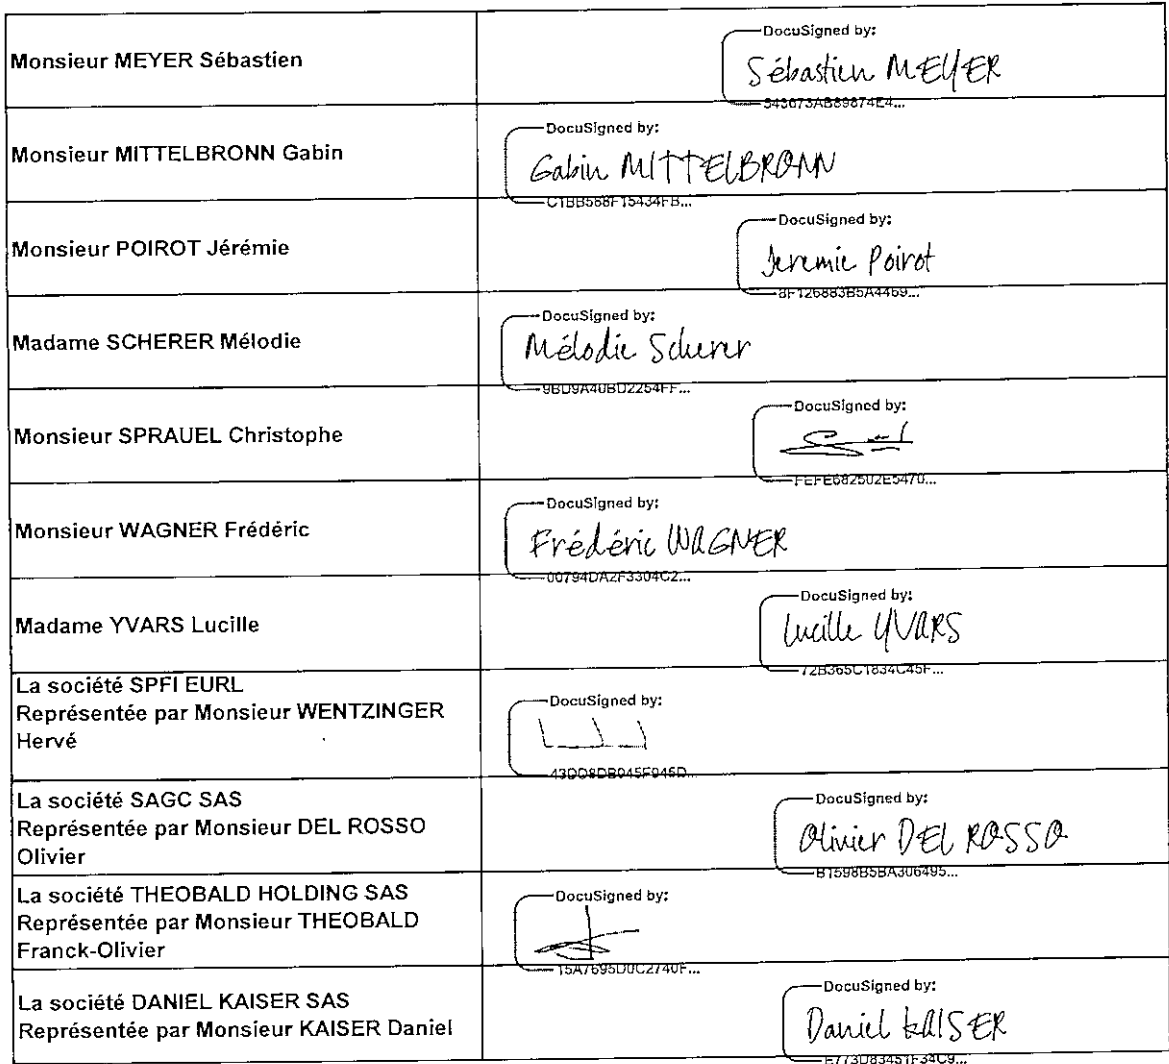 Monsieur MEYER Sébastien
DocuSigned by:
Sébastien MEYER
543673AB89874E4...
Monsieur MITTELBRONN Gabin
DocuSigned by:
Gabin MITTELBRONN
C1BB568F15434FB...
Monsieur POIROT Jérémie
DocuSigned by:
Jeremie Poirot
8F126883B5A4469...
Madame SCHERER Mélodie
DocuSigned by:
Mélodie Scherer
9BD9A40BD2254FF...
Monsieur SPRAUEL Christophe
DocuSigned by:
FEFE682502E5470...
Monsieur WAGNER Frédéric
DocuSigned by:
Frédéric WAGNER
00794DA2F3304C2...
Madame YVARS Lucille
DocuSigned by:
Lucille YVARS
72B365C1834C45F...
La société SPFI EURL
Représentée par Monsieur WENTZINGER
Hervé
DocuSigned by:
43DD8DB945F945D...
La société SAGC SAS
Représentée par Monsieur DEL ROSSO
Olivier
DocuSigned by:
Olivier DEL ROSSO
B1598B5BA306495...
La société THEOBALD HOLDING SAS
Représentée par Monsieur THEOBALD
Franck-Olivier
DocuSigned by:
15A7695D0C2740F...
La société DANIEL KAISER SAS
Représentée par Monsieur KAISER Daniel
DocuSigned by:
Daniel KAISER
E773D83451F34C9...